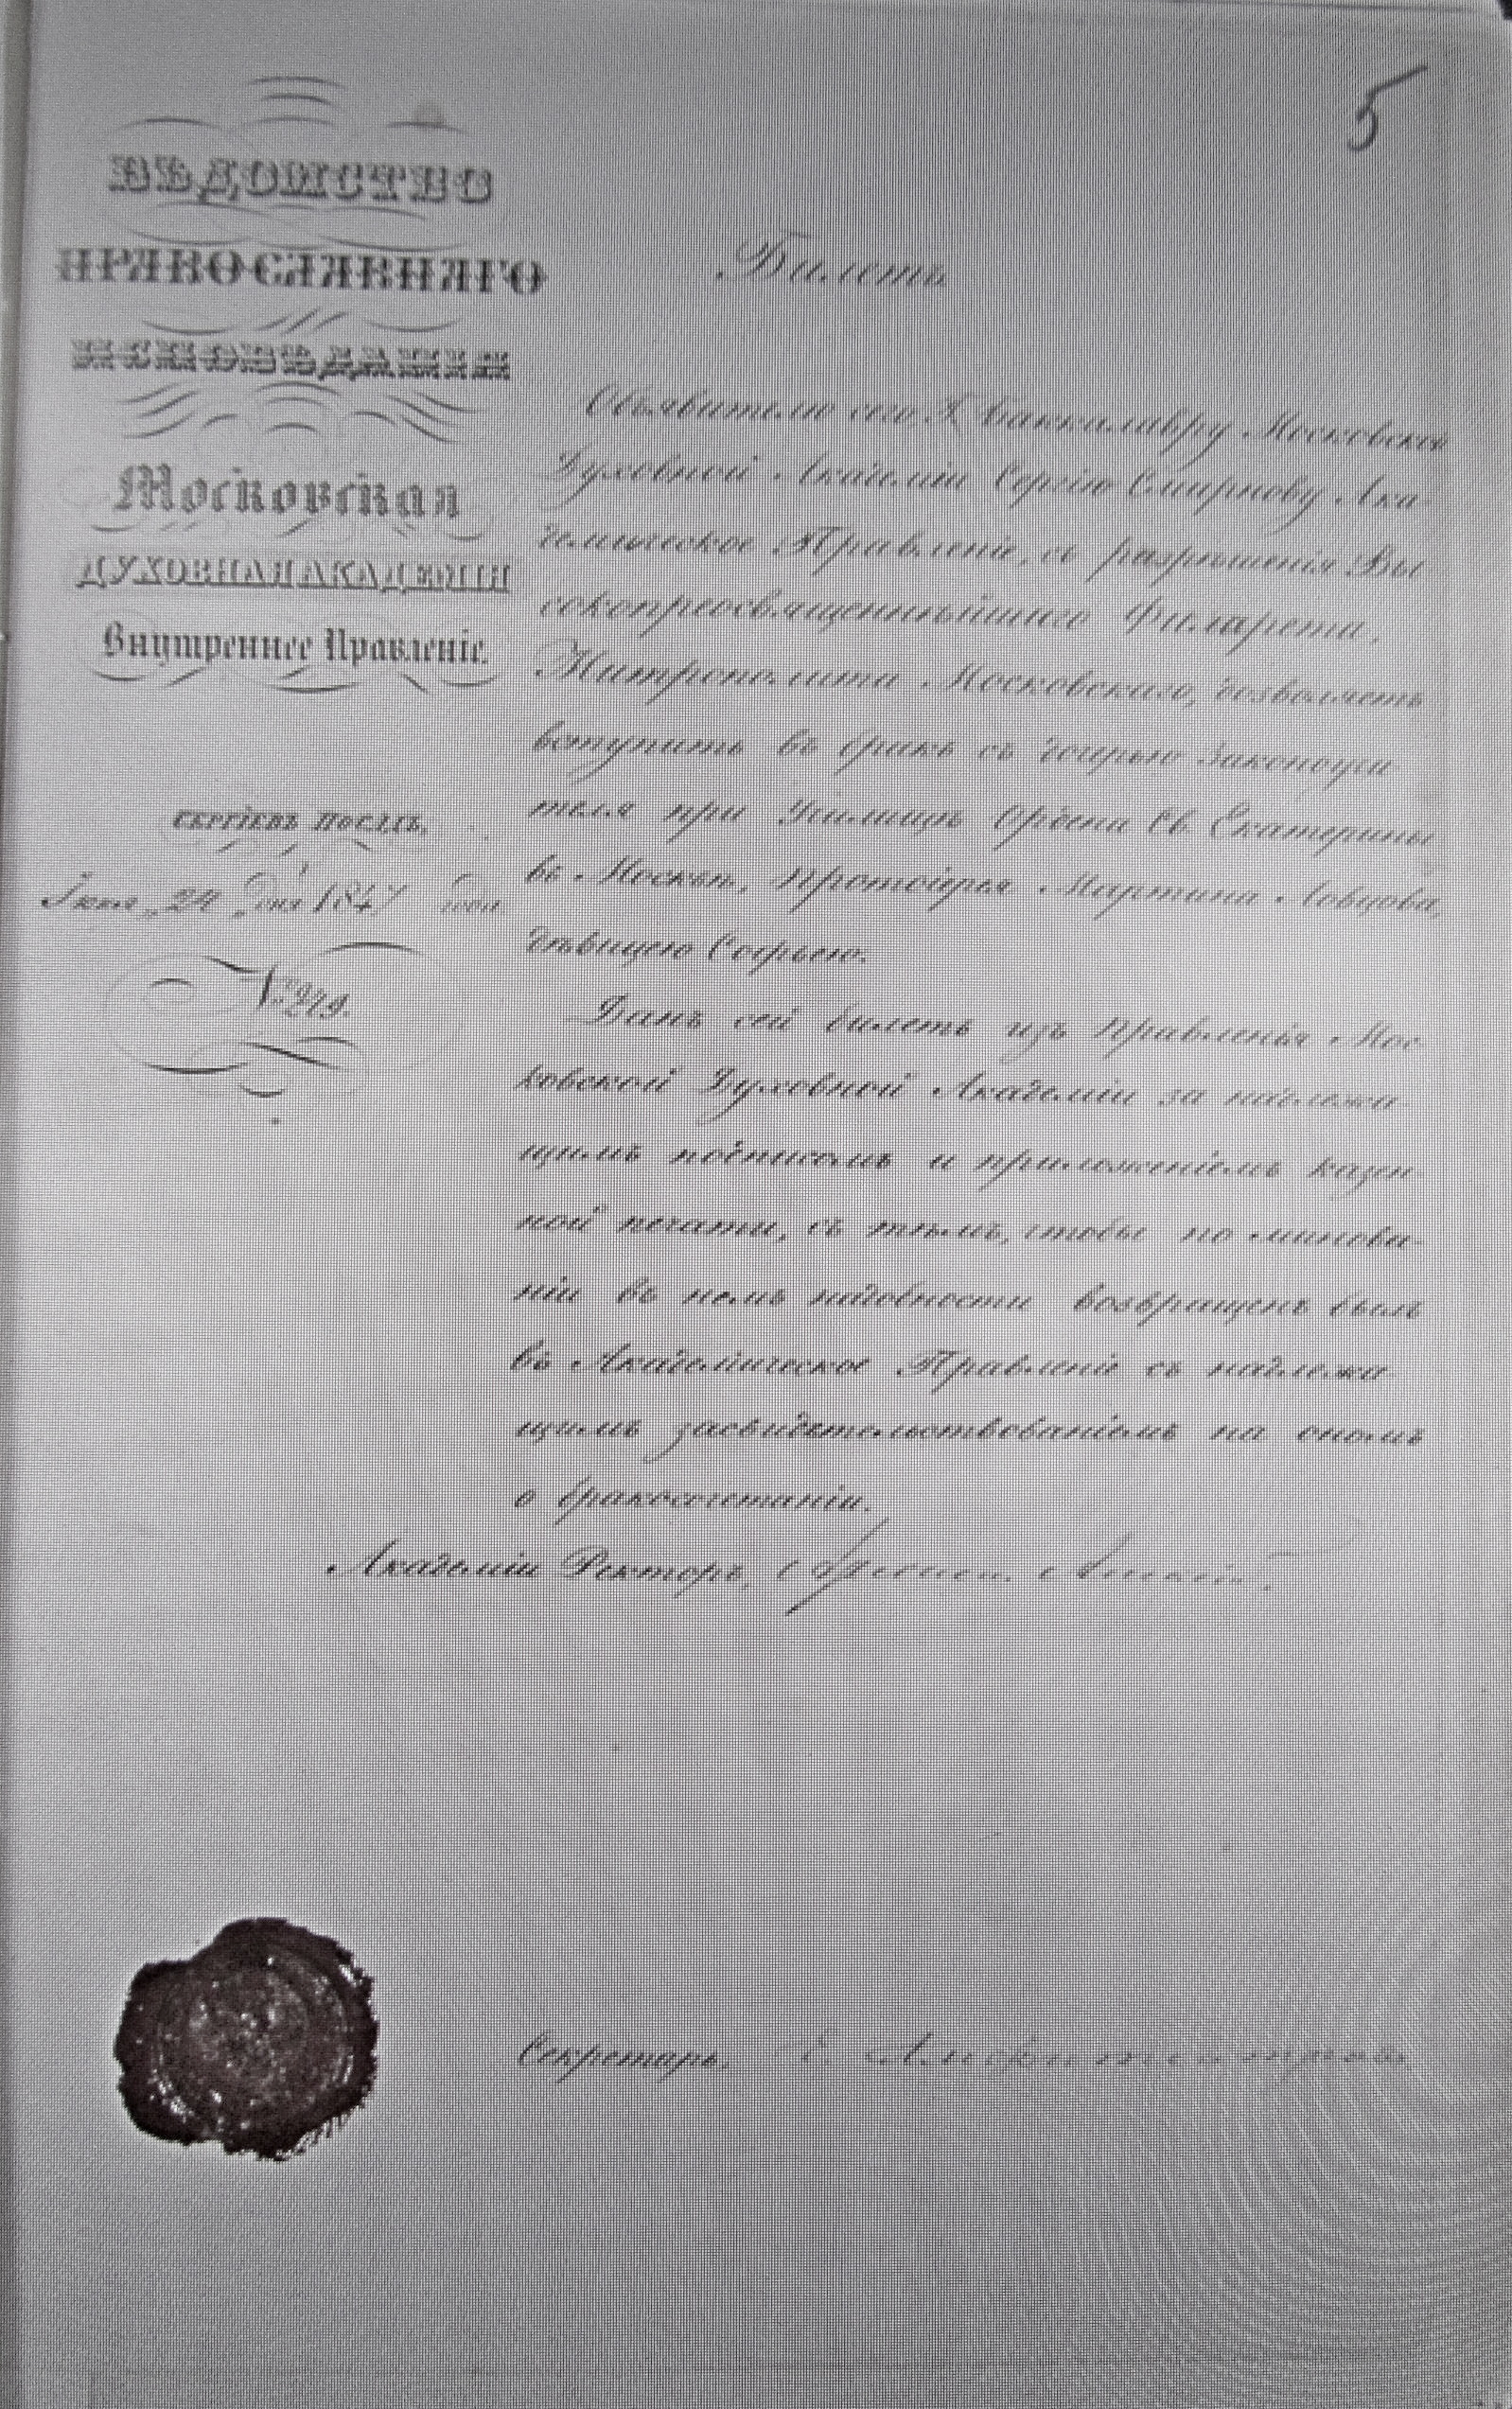 5
ВѢДОМСТВО
ПРАВОСЛАВНАГО
ИСПОВѢДАНІЯ
Московская
ДУХОВНАЯ АКАДЕМІЯ
Внутреннее Правленіе.
СЕРГІЕВЪ ПОСАДЪ.
24 дня 1847 года.
№ 279.
Билетъ
Объявителю сего, Баккалавру Московской
Духовной Академіи Сергію Смирнову Ака-
демическое Правленіе, съ разрѣшенія Вы-
сокопреосвященнѣйшаго Филарета,
Митрополита Московскаго, дозволяетъ
вступить въ бракъ съ дочерью Законоучи-
теля при Училищѣ Ордена Св. Екатерины
въ Москвѣ, Протоіерея Мартина Ловцова,
дѣвицею Софьею.
Данъ сей билетъ изъ Правленія Мос-
ковской Духовной Академіи за надлежа-
щимъ подписомъ и приложеніемъ казен-
ной печати, съ тѣмъ, чтобы по минова-
ніи въ немъ надобности возвращенъ былъ
въ Академическое Правленіе съ надлежа-
щимъ засвидѣтельствованіемъ на ономъ
о бракосочетаніи.
Академіи Ректоръ,
Секретарь,